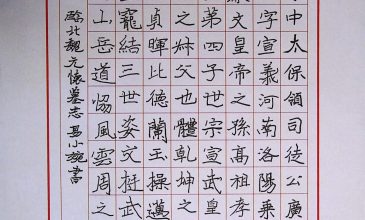 中太保領司徒公廣
字宣義河南洛陽乘
文皇帝之孫高祖孝
第四子世宗宣武皇
之叔父也體乾坤之
貞暉比德蘭玉操邁
寵結三世姿文挺武
山岳道恊風雲周之
臨北魏元懷墓志 易小琬書